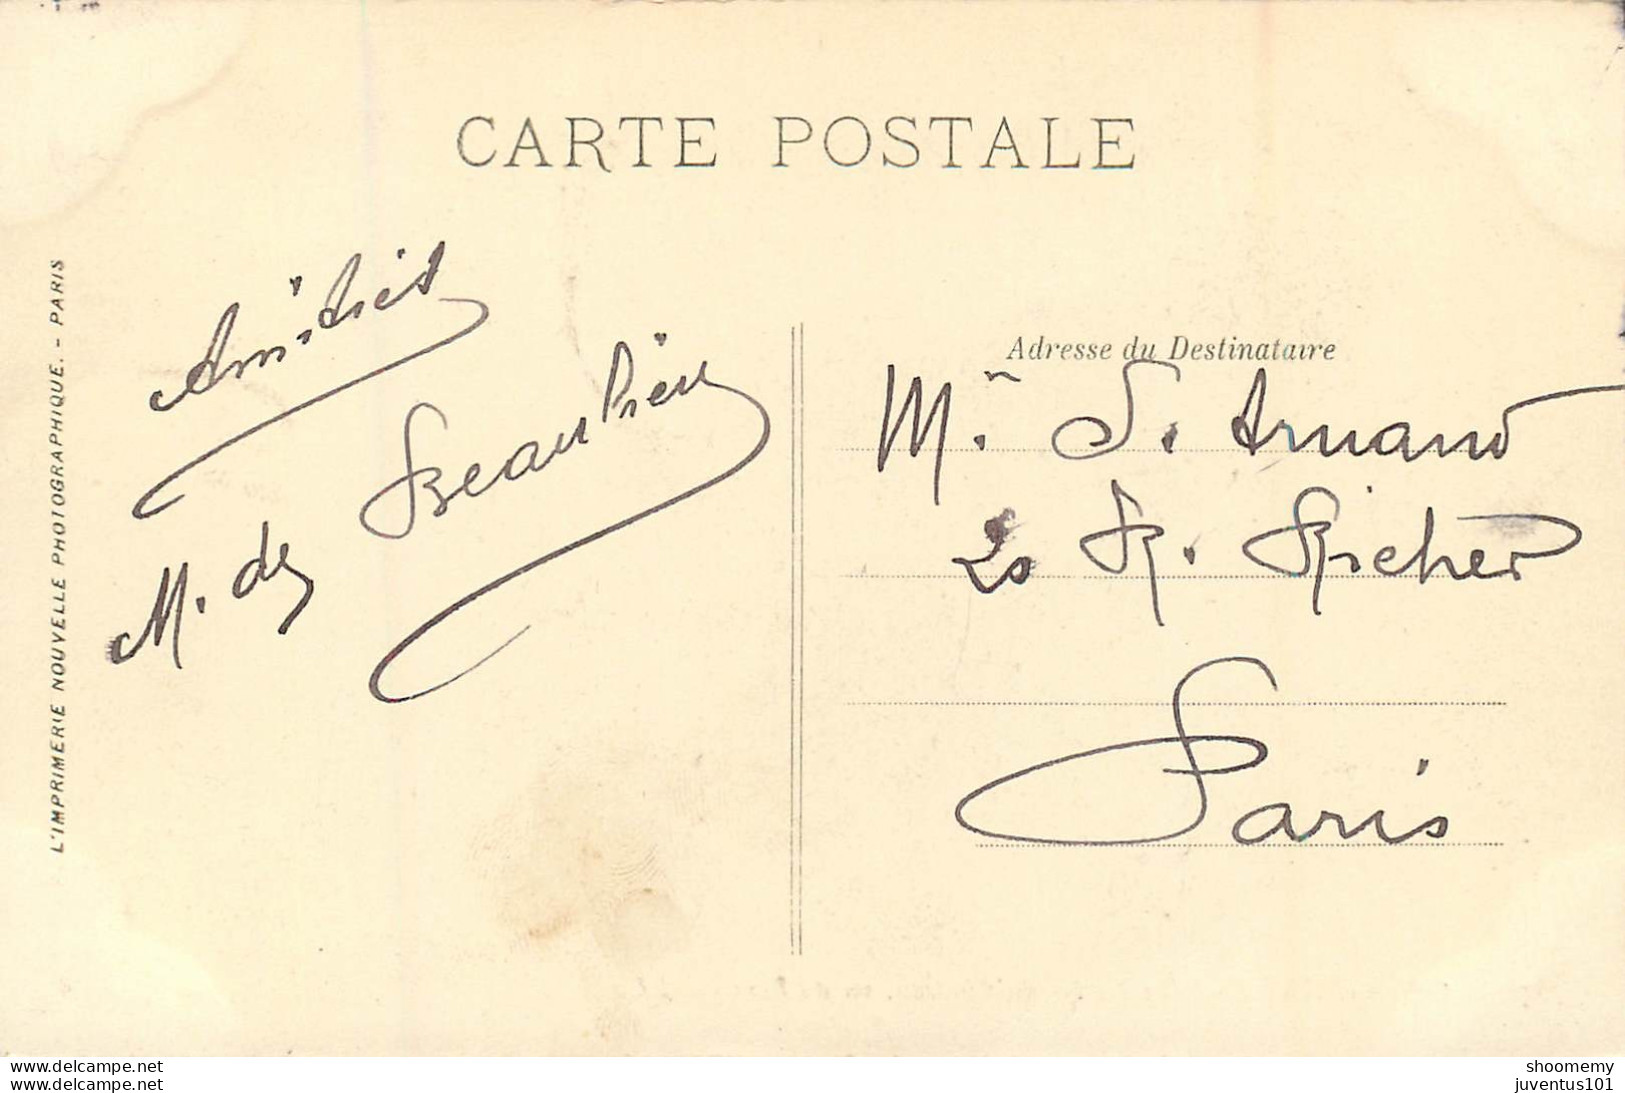 CARTE POSTALE
L'IMPRIMERIE NOUVELLE PHOTOGRAPHIQUE. - PARIS
Amitiés
M. de Beaulieu
Adresse du Destinataire
Mr. S. Armand
20 R. Richer
Paris
delcampe.net
delcampe.net
shoomemy
juventus101